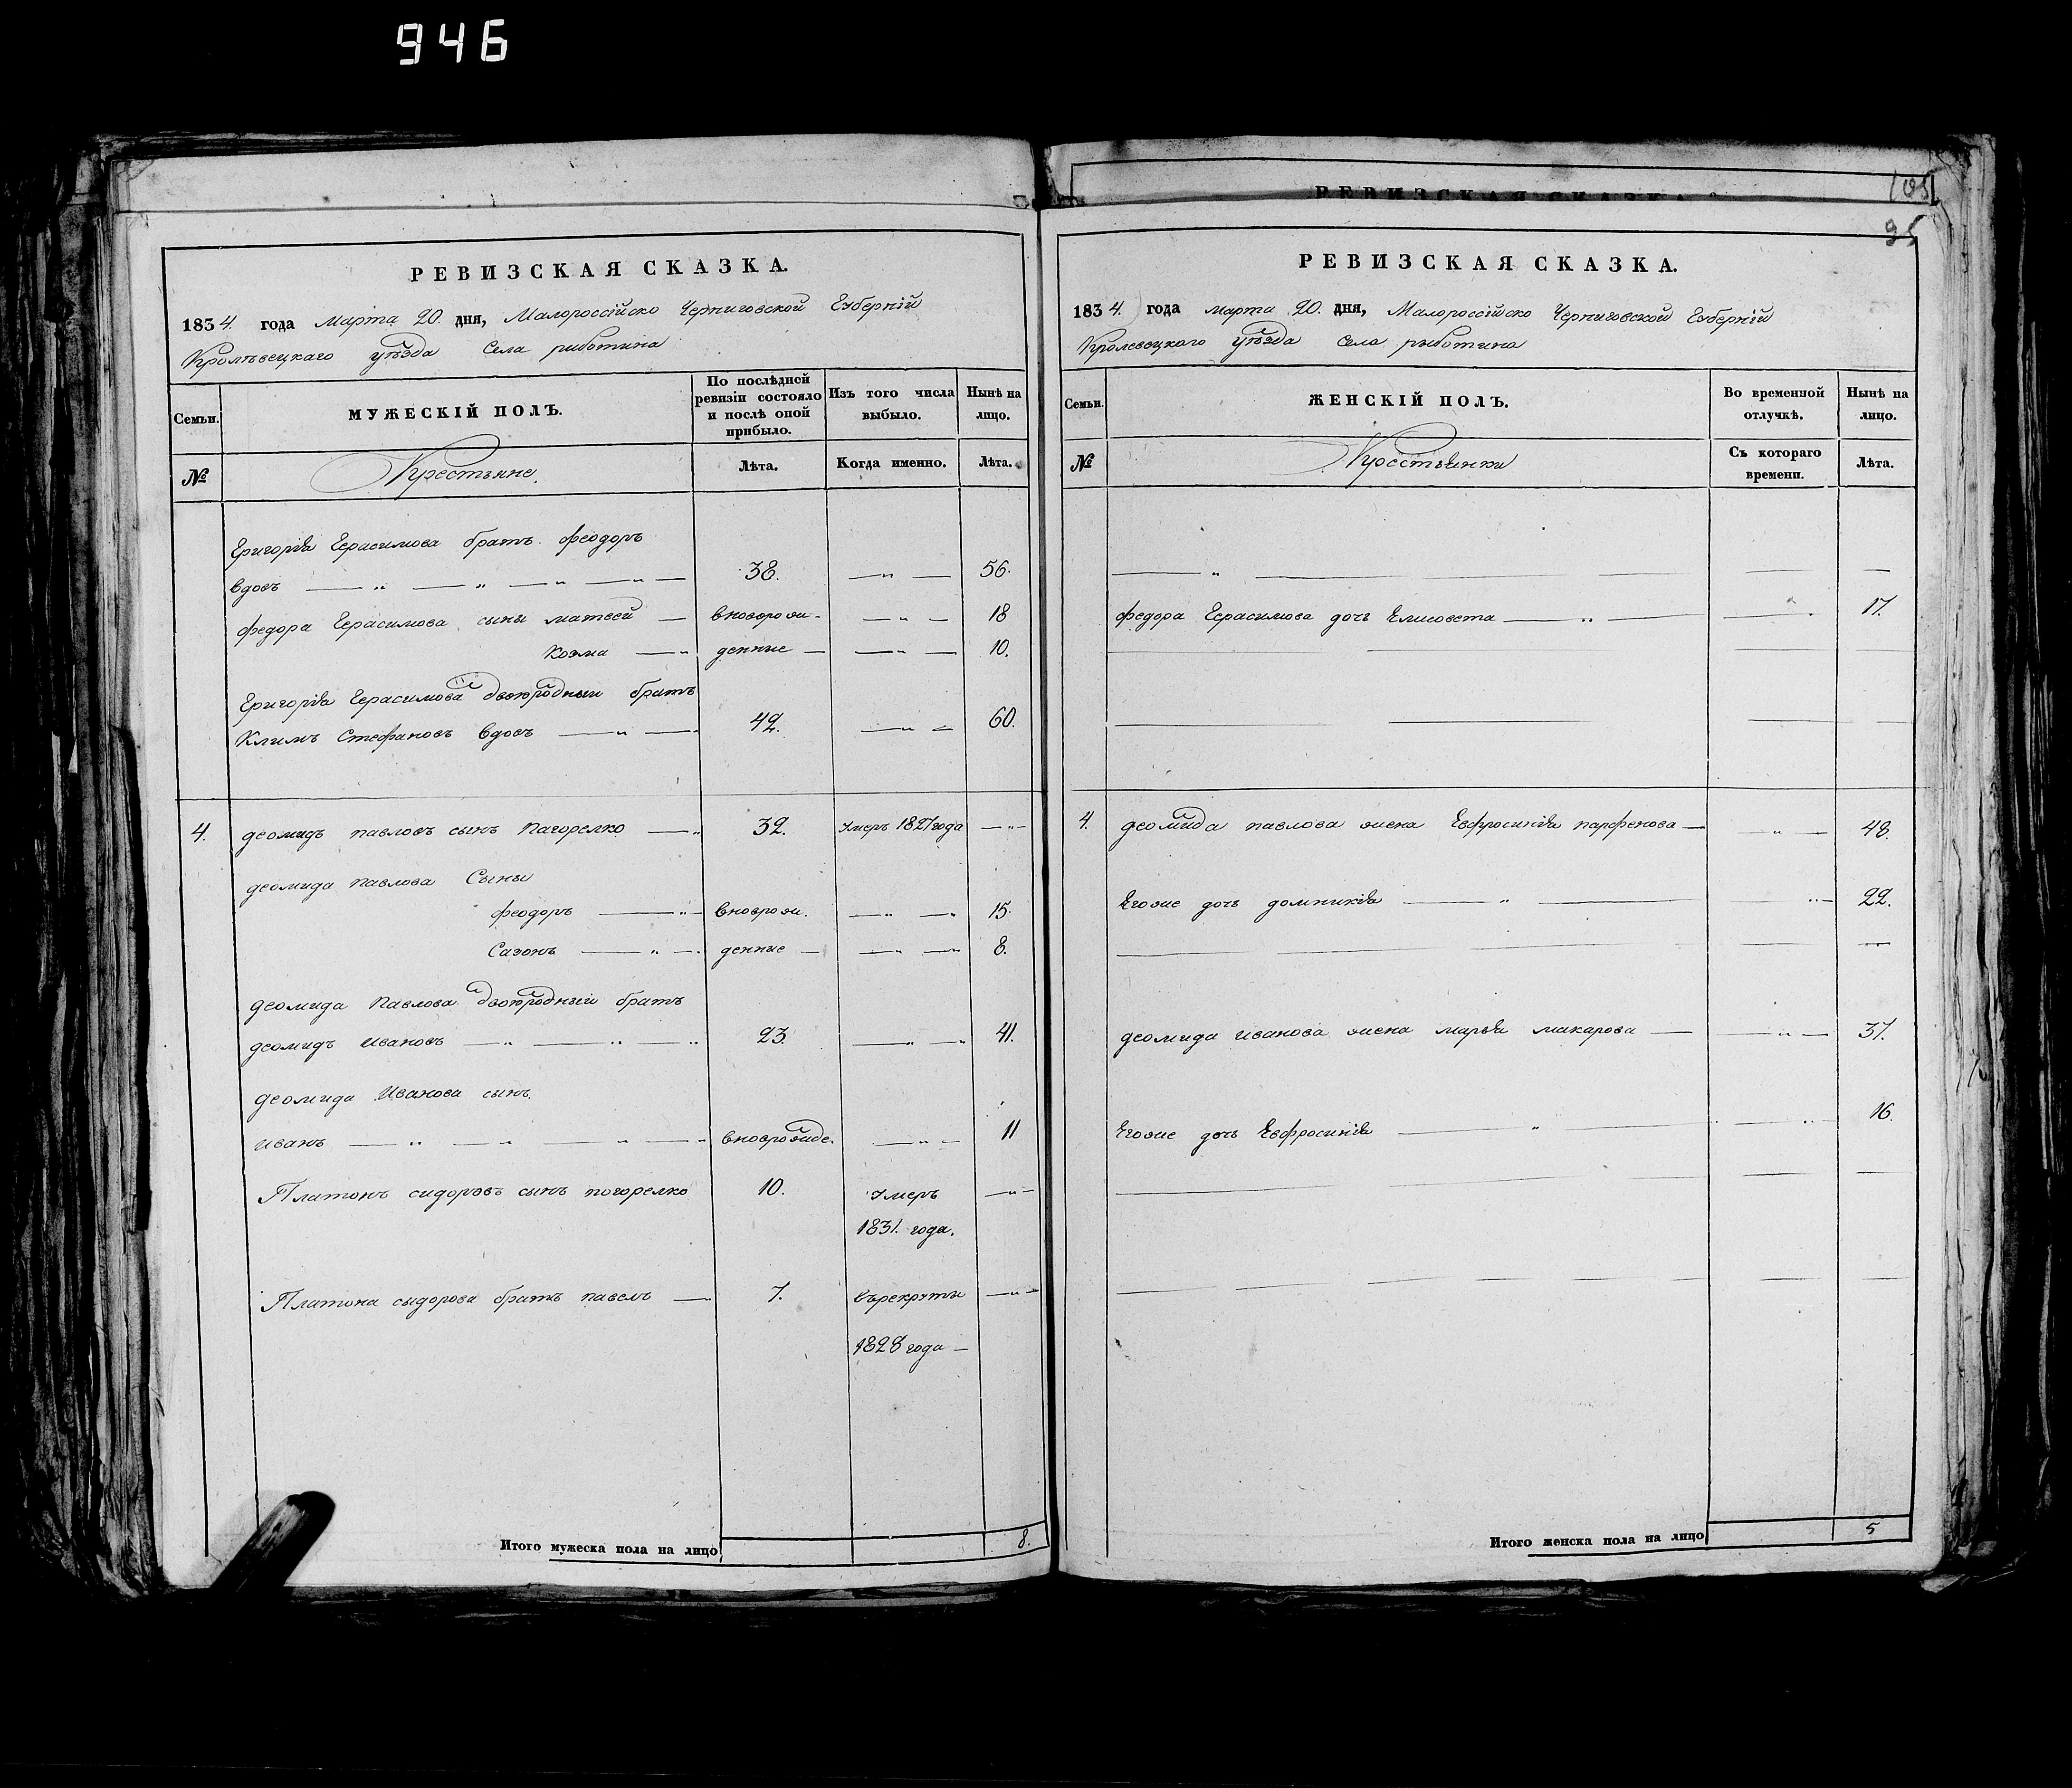 946
105
95
РЕВИЗСКАЯ СКАЗКА.
1834. года марта 20. дня, Малороссійско Черниговской Губерніи
Кролѣвецкаго уѣзда Села риботина
Семьи. МУЖЕСКІЙ ПОЛЪ. По послѣдней ревизіи состояло и послѣ оной прибыло. Изъ того числа выбыло. Нынѣ на лицо.
№ Крестьяне. Лѣта. Когда именно. Лѣта.
Григорія Герасимова братъ феодоръ
вдовъ — „ — „ — „ — „ — 38. — „ — 56.
федора Герасимова сыны матвей — вноврож- — „ — 18
Козма — „ денные — — „ — 10.
Григорія Герасимова двоюродный братъ
Климъ Стефановъ вдовъ — „ — 42. — „ — 60.
4. деомидъ павловъ сынъ пагорелко — „ 32. умеръ 1827 года — „ —
деомида павлова Сыны
феодоръ — „ — вноврож. — „ — „ 15.
Сазонъ — „ — денные — — „ — „ 8.
деомида павлова двоюродный братъ
деомидъ ивановъ — „ — „ — „ 23. — „ — „ 41.
деомида Иванова сынъ
иванъ — „ — „ „ — „ вноврожде. — „ — 11
Платонъ сидоровъ сынъ погорелко 10. умеръ — „ —
1831. года.
Платона сыдорова братъ павелъ — 7. въ рекруты — „ —
1828 года —
Итого мужеска пола на лицо 8.
РЕВИЗСКАЯ СКАЗКА.
РЕВИЗСКАЯ СКАЗКА.
1834. года марта 20. дня, Малороссійско Черниговской Губерніи
Кролевецкаго уѣзда села рыботина
Семьи. ЖЕНСКІЙ ПОЛЪ. Во временной отлучкѣ. Нынѣ на лицо.
№ Крестьянки Съ котораго времени. Лѣта.
— „ — — — — —
федора Герасимова дочь Елисовета — „ — — 17.
4. деомида павлова жена Евфросинія парфенова — — „ — 48.
Егоже дочь домникія — „ — „ — 22.
деомида иванова жена марья макарова — — „ — 37.
Егоже дочь Евфросинія — „ — — „ — 16.
Итого женска пола на лицо 5